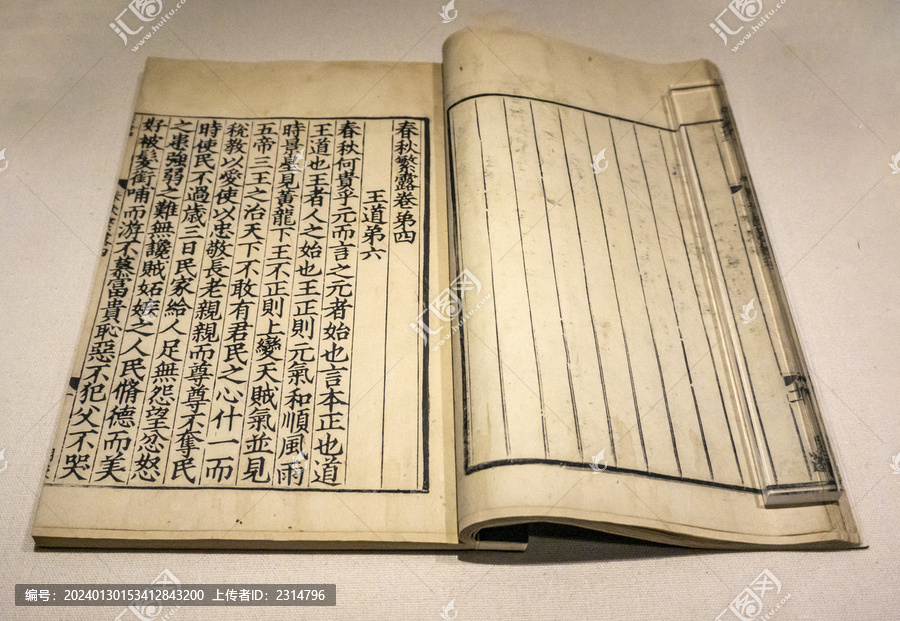 春秋繁露卷第四
王道第六
春秋何貴乎元而言之元者始也言本正也道
王道也王者人之始也王正則元氣和順風雨
時景星見黃龍下王不正則上變天賊氣並見
五帝三王之治天下不敢有君民之心什一而
稅教以愛使以忠敬長老親親而尊尊不奪民
時使民不過歲三日民家給人足無怨望忿怒
之患強弱之難無讒賊妬嫉之人民脩德而美
好被髮銜哺而游不慕富貴恥惡不犯父不哭
汇图网
www.huitu.com
编号：20240130153412843200 上传者ID：2314796